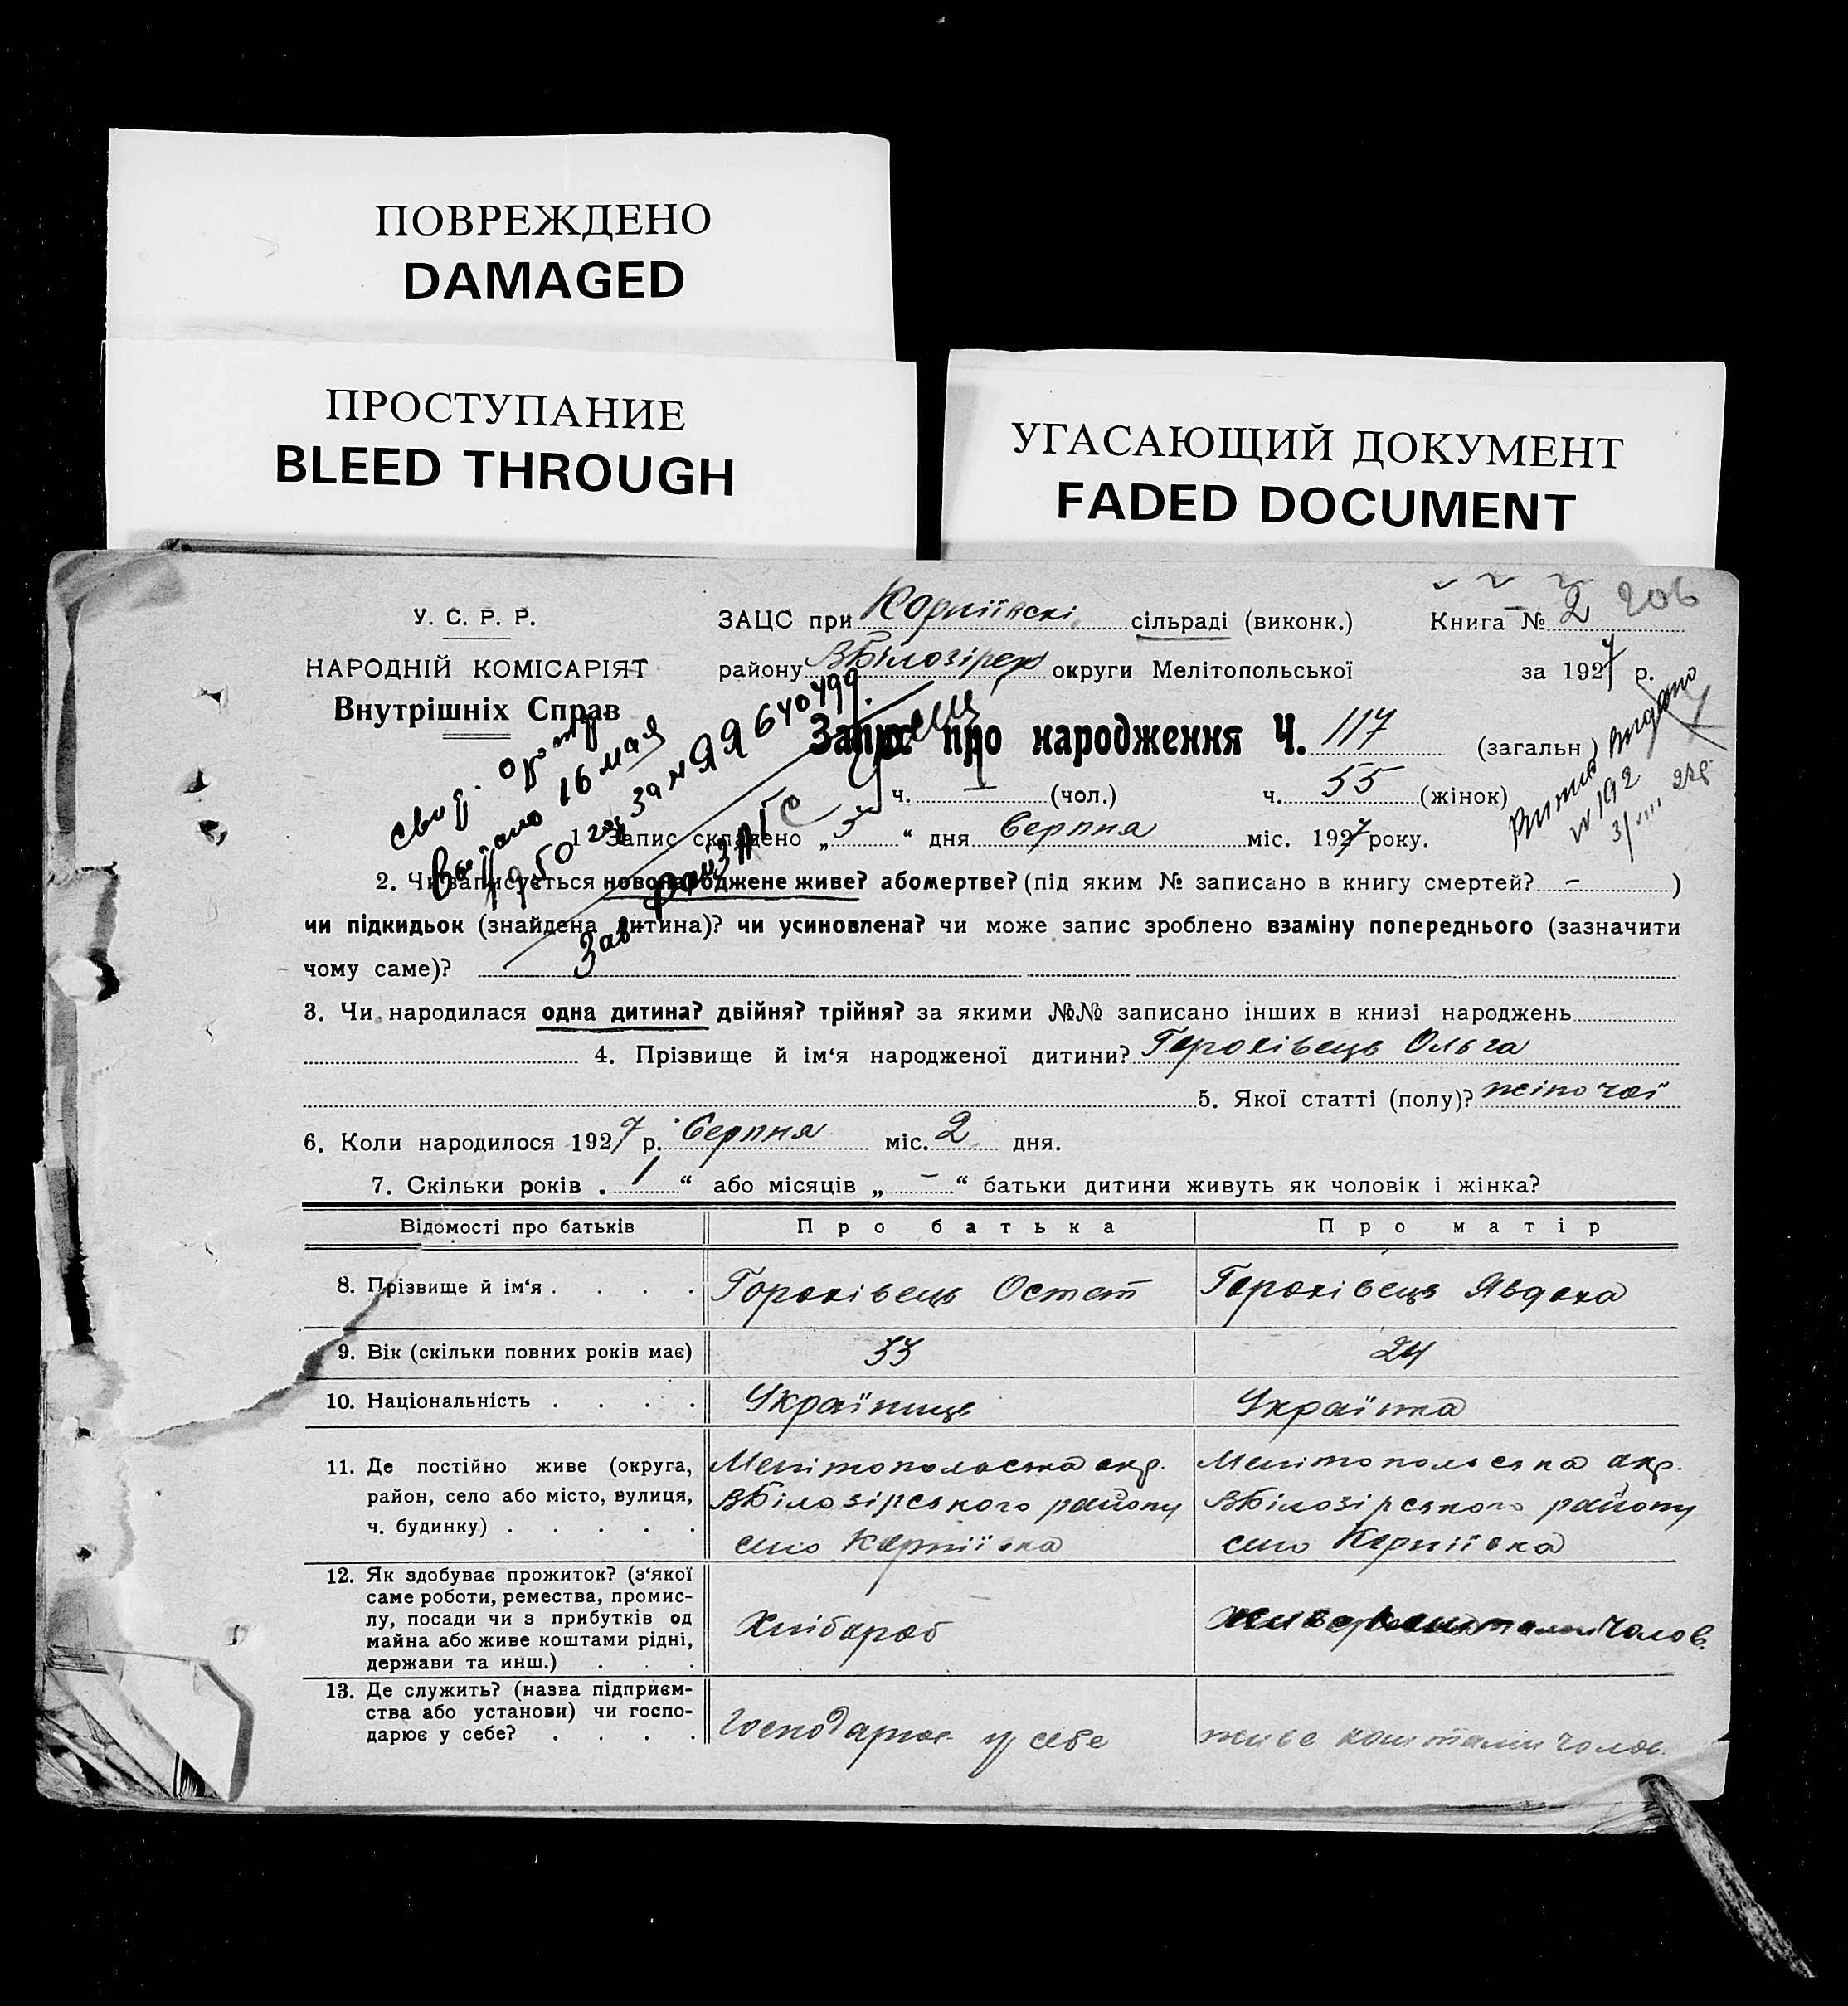 ПОВРЕЖДЕНО
DAMAGED
ПРОСТУПАНИЕ
BLEED THROUGH
УГАСАЮЩИЙ ДОКУМЕНТ
FADED DOCUMENT
206
У. С. Р. Р.
ЗАЦС при Корніївскі сільраді (виконк.) Книга № 2
НАРОДНІЙ КОМІСАРІЯТ
району ВБілозірск округи Мелітопольської за 1927 р.
Внутрішніх Справ
Запис про народження Ч. 117 (загальн)
ч. — (чол.) ч. 55 (жінок)
Выдано 16 мая
1950 за № ЯЯ 640499.
Зав. райЗАГС
1 Запис складено „ 5 “ дня Серпня міс. 1927 року.
2. Чи записується новонароджене живе? або мертве? (під яким № записано в книгу смертей? – )
чи підкидьок (знайдена дитина)? чи усиновлена? чи може запис зроблено взаміну попереднього (зазначити
чому саме)?
3. Чи народилася одна дитина? двійня? трійня? за якими №№ записано інших в книзі народжень
4. Прізвище й ім‘я народженої дитини? Горохівець Ольга
5. Якої статті (полу)? жіночої
6. Коли народилося 1927 р. Серпня міс. 2 дня.
7. Скільки років „ 1 “ або місяців „ – “ батьки дитини живуть як чоловік і жінка?
Відомості про батьків Про батька Про матір
8. Прізвище й ім‘я . . . . Горохівець Остап Горохівець Явдоха
9. Вік (скільки повних років має) 33 24
10. Національність . . . . Українець Українка
11. Де постійно живе (округа, Мелітопольська окр. Мелітопольська окр.
район, село або місто, вулиця, ВБілозірського району ВБілозірського району
ч. будинку) . . . . . село Корніївка село Корніївка
12. Як здобуває прожиток? (з‘якої
саме роботи, ремества, промис-
лу, посади чи з прибутків од Хлібороб живе коштами чолов.
майна або живе коштами рідні,
держави та инш.) . . .
13. Де служить? (назва підприєм-
ства або установи) чи госпо- Господарює у себе живе коштами чолов.
дарює у себе? . . . .